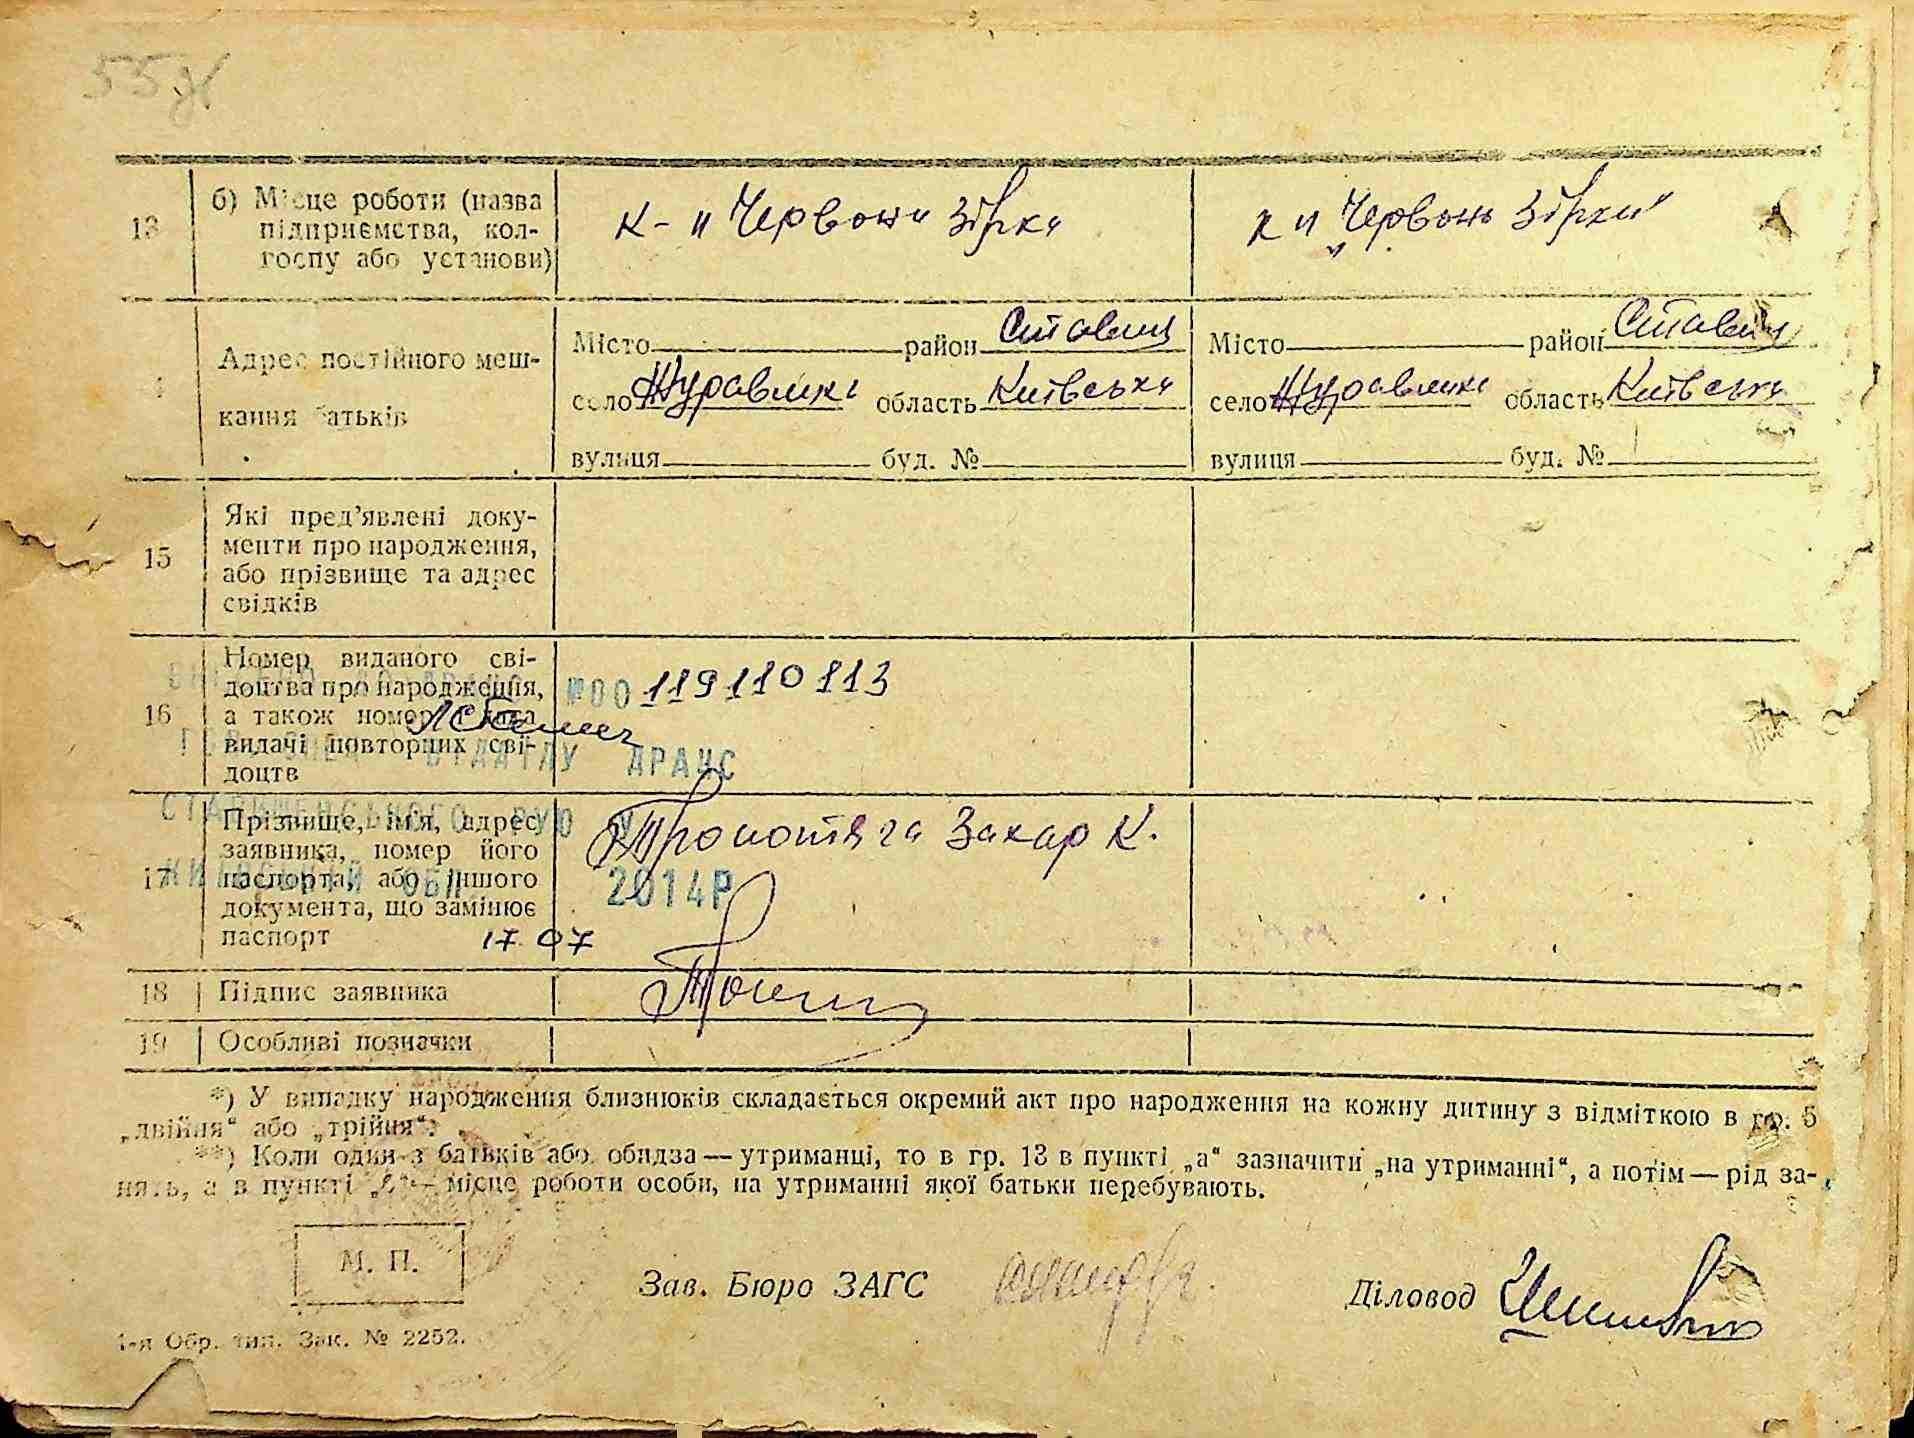 55
13
б) Місце роботи (назва
підприємства, кол-
госпу або установи)
к- „ Червона Зірка
к „ Червона Зірка"
4
Адрес постійного меш-
кання батьків
Місто район Ставищ
село Журавлика область Київська
вулиця буд. №
Місто район Ставищ
село Журавлика область Київська
вулиця буд. №
15
Які пред’явлені доку-
менти про народження,
або прізвище та адрес
свідків
16
Номер виданого сві-
доцтва про народження,
а також номер і дата
видачі повторних сві-
доцтв
№00 119110113
ВІДДІЛУ ДРАЦС
СТАВИЩЕНСЬКОГО РУЮ У
КИЇВСЬКІЙ ОБЛ 2014Р
17 07
17
Прізвище, ім’я, адрес
заявника, номер його
паспорта, або іншого
документа, що замінює
паспорт
Захар К.
18 Підпис заявника
19 Особливі позначки
*) У випадку народження близнюків складається окремий акт про народження на кожну дитину з відміткою в гр. 5
„двійня“ або „трійня“.
**) Коли один з батьків або обидва — утриманці, то в гр. 13 в пункті „а“ зазначити „на утриманні“, а потім — рід за-
нять, а в пункті „б“ — місце роботи особи, на утриманні якої батьки перебувають.
М. П.
Зав. Бюро ЗАГС
Діловод
1-я Обр. тип. Зак. № 2252.